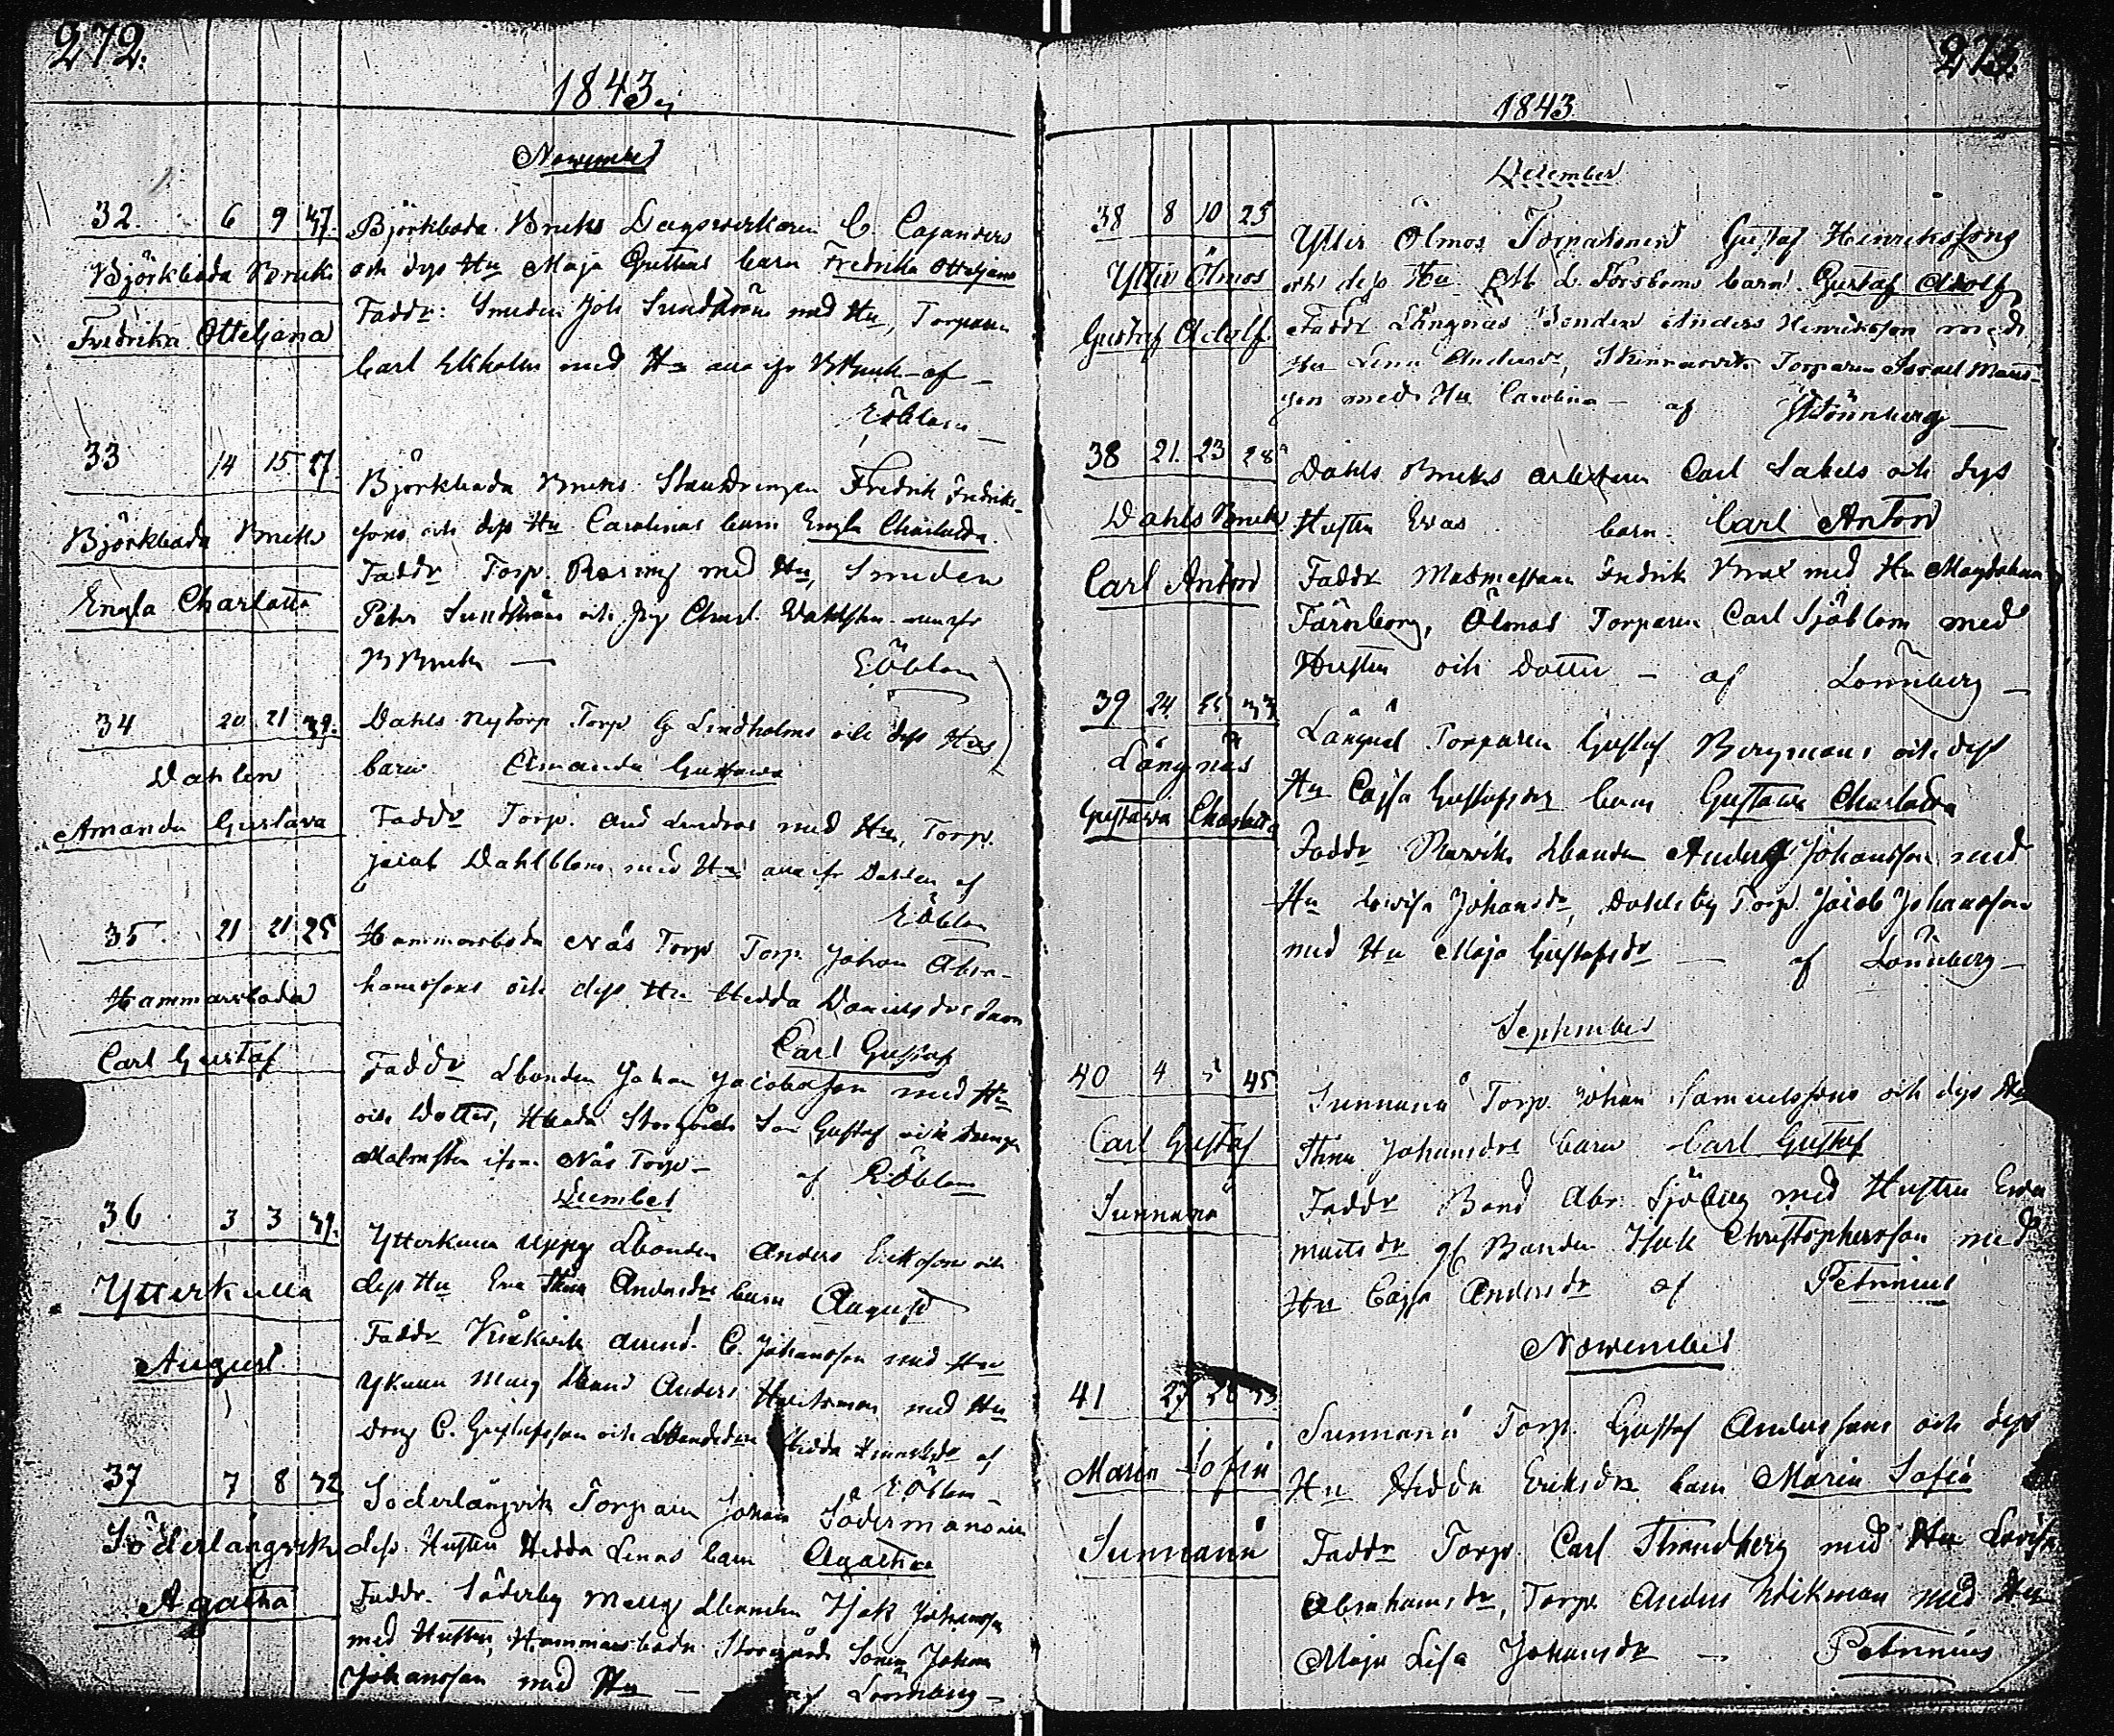 272.
1843
November
32. 6 9 47.
Björkboda Bruk
Fredrika Otteljana
Björkboda Bruks Dagsverkaren C. Cajanders
och dess Hu Maja Grettas barn Fredrika Otteljana
Faddr: Smeden Joh Sundström med Hu, Torparen
Carl Ekholm med Hu alla ifr BBruk af
Eöblom
33 14 15 27.
Björkboda Bruk
Engla Charlotta
Björkboda Bruks Fredrik Fredriks-
sons och dess Hu Carolinas barn Engla Charlotta.
Faddr Torp. Rosring med Hu, Smeden
Peter Sundström och Charl. Wahlsten
BBruk —
Eöblom
34 20 21 39.
Dahlen
Amanda Gustava
Dahls Nytorp Torp G Lindholms och dess Hus
barn Amanda Gustawa
Faddr Torp. And Lindros med Hu, Torp.
Jacob Dahlblom med Hu alla ifr Dahlen af
Eöblom
35. 21 21 25
Hammarsboda
Carl Gustaf
Hammarsboda Näs Torp Torp. Johan Abra-
hamssons och dess Hu Hedda Danielsdrs barn
Carl Gustaf
Faddr Lbonden Johan Jacobsson med Hu
och Dotter, Storgårds Son Gustaf och
Malmsten ifrån Näs Torp —
af Eöblom
December
36 3 3 39.
Ytterkulla
August
Ytterkulla Uppg Lbonden Anders Erikssons och
dess Hu Eva Stina Andersdrs barn August
Faddr C. Johansson med Hu
Ykulla Mellg Lbond Anders med Hu
Dreng C. Gustafsson och Hedda af
Eöblom —
37 7 8 32
Söderlångvik
Agatha
Söderlångvik Torparen Johan Södermans och
dess Hustru Hedda Lenas barn Agatha
Faddr. Söderby Mellg Lbonden Isak Johansson
med Hustru, Hammarsboda Storgårds Sonen Johan
Johansson med Hu — af Lönnberg —
273.
1843
December
38 8 10 25
Ytter Ölmos
Gustaf Adolf
Ytter Ölmos Torpakarlen Gustaf Henrikssons
och dess Hu L. Forsboms barn Gustaf Adolf
Faddr Långnäs Bonden Anders Henriksson med
Hu Lena Andersdr, Skinnarvik Torparen Israel Mans-
son med Hu Carolina — af Lönnberg —
38 21. 23 28
Dahls Bruk
Carl Anton
Dahls Bruks arbetaren Carl Sakels och dess
Hustru Evas barn Carl Anton
Faddr Masmestaren Fredrik med Hu Magdalena
Färnborg, Ölmos Torparen Carl Sjöblom med
Hustru och Dotter — af Lönnberg —
39 24.
Långnäs
Gustawa Charlotta
Långnäs Torparen Gustaf Bergmans och dess
Hu Cajsa Gustafsdrs barn Gustawa Charlotta
Faddr Lbonden Anders Johansson med
Hu Lovisa Johansdr, Dahlsby Torp. Jacob Johansson
med Hu Maja Gustafsdr — af Lönnberg —
September
40 4 5 45
Carl Gustaf
Sunnanå
Sunnanå Torp. Johan Samuelssons och dess Hu
Stina Johansdrs barn Carl Gustaf
Faddr Bond Abr. Sjöberg med Hustru Eva
Mattsdr Bonden Isak Christophersson med
Hu Cajsa Andersdr af Petrinius
November
41 27 28 33
Maria Sofia
Sunnanå
Sunnanå Torp. Gustaf Anderssons och dess
Hu Hedda Eriksdrs barn Maria Sofia
Faddr Torp. Carl Strandberg med Hu Lovisa
Abrahamsdr, Torp. Anders Wikman med Hu
Maja Lisa Johansdr — Petrinius